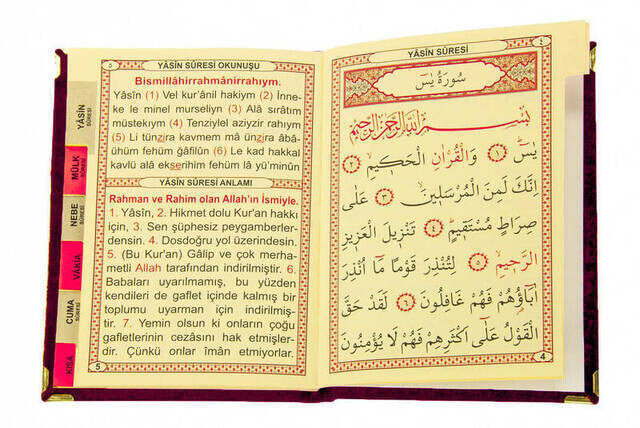 ٥
YÂSÎN SÛRESİ OKUNUŞU
Bismillâhirrahmânirrahıym.
Yâsîn (1) Vel kur'ânil hakiym (2) İnne-
ke le minel murseliyn (3) Alâ sırâtım
müstekıym (4) Tenziylel aziyzir rahıym
(5) Li tünzira kavmem mâ ünzira âbâ-
ühüm fehüm gâfilûn (6) Le kad hakkal
kavlü alâ ekserihim fehüm lâ yü'minûn
YÂSÎN SÛRESİ ANLAMI
Rahman ve Rahim olan Allah'ın İsmiyle.
1. Yâsîn, 2. Hikmet dolu Kur'an hakkı
için, 3. Sen şüphesiz peygamberler-
densin. 4. Dosdoğru yol üzerindesin.
5. (Bu Kur'an) Gâlip ve çok merha-
metli Allah tarafından indirilmiştir. 6.
Babaları uyarılmamış, bu yüzden
kendileri de gaflet içinde kalmış bir
toplumu uyarman için indirilmiş-
tir. 7. Yemin olsun ki onların çoğu
gafletlerinin cezasını hak etmişler-
dir. Çünkü onlar îmân etmiyorlar.
5
YÂSÎN
SÛRESİ
MÜLK
SÛRESİ
NEBE
SÛRESİ
VÂKIA
CUMA
SÛRESİ
KISA
YÂSÎN SÛRESİ
٤
سُورَةُ يٰسٓ
بِسْمِ اللّٰهِ الرَّحْمٰنِ الرَّحٖيمِ
يٰسٓ ﴿١﴾ وَالْقُرْاٰنِ الْحَكٖيمِ ﴿٢﴾
اِنَّكَ لَمِنَ الْمُرْسَلٖينَ ﴿٣﴾ عَلٰى
صِرَاطٍ مُسْتَقٖيمٍ ﴿٤﴾ تَنْزٖيلَ الْعَزٖيزِ
الرَّحٖيمِ ﴿٥﴾ لِتُنْذِرَ قَوْمًا مَٓا اُنْذِرَ
اٰبَٓاؤُهُمْ فَهُمْ غَافِلُونَ ﴿٦﴾ لَقَدْ حَقَّ
الْقَوْلُ عَلٰٓى اَكْثَرِهِمْ فَهُمْ لَا يُؤْمِنُونَ
4